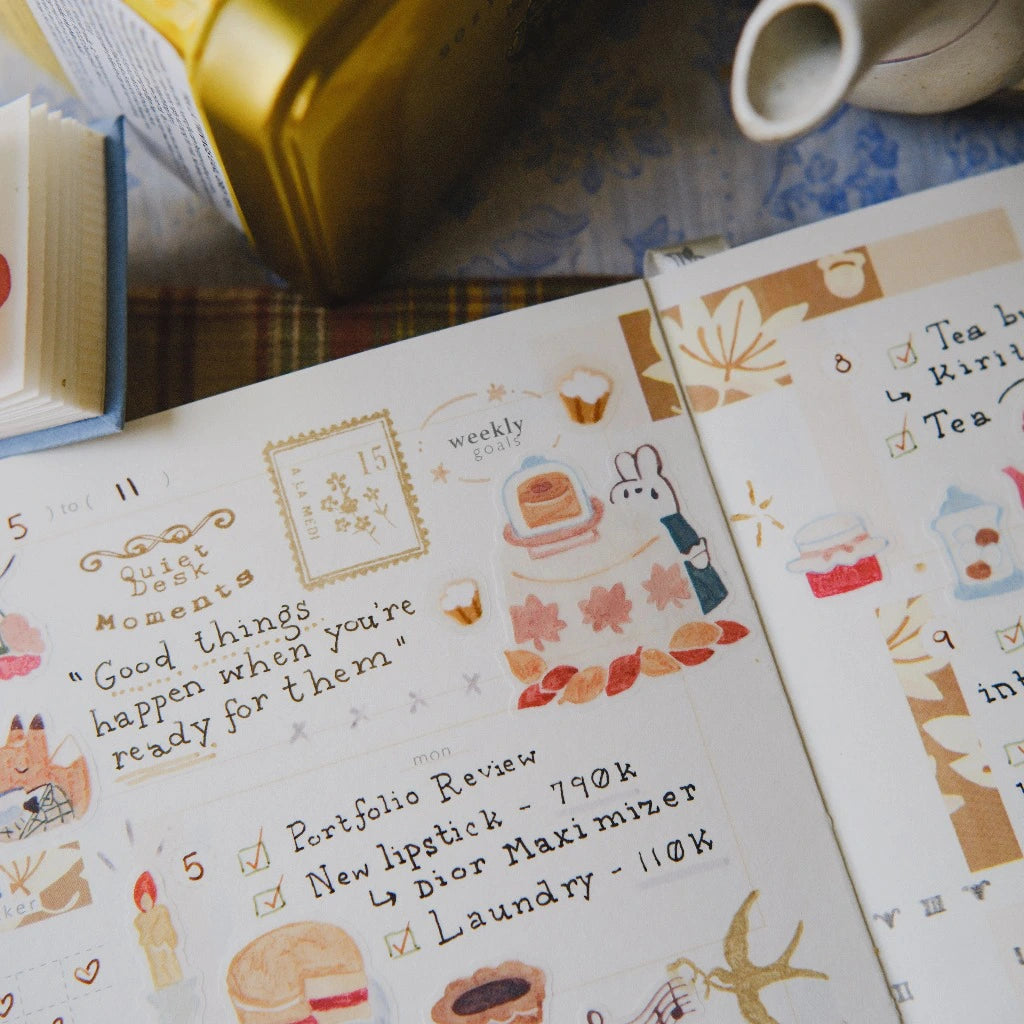 5 ) to ( 11 )
Quiet
Desk
Moments
15
A LA MEDI
weekly
goals
"Good things
happen when you're
ready for them"
mon
5
Portfolio Review
New lipstick - 790K
↳ Dior Maximizer
Laundry - 110K
8
Tea
↳
Tea
9